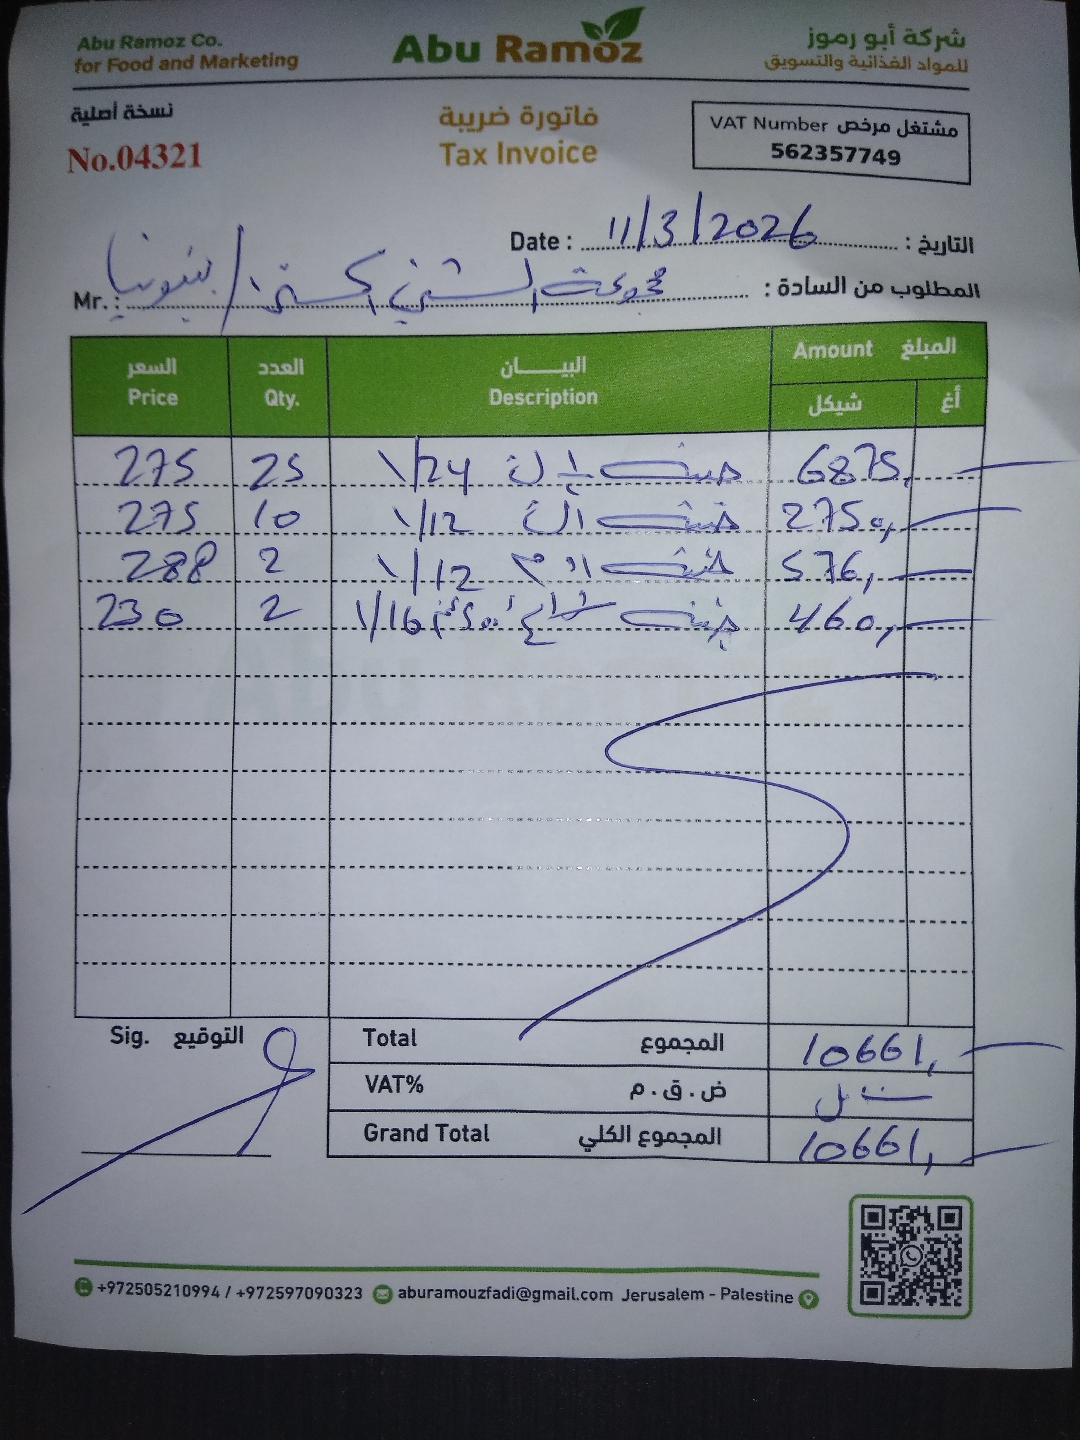 Abu Ramoz Co.
for Food and Marketing
Abu Ramoz
شركة أبو رموز
للمواد الغذائية والتسويق
نسخة أصلية
No.04321
فاتورة ضريبة
Tax Invoice
VAT Number مشتغل مرخص
562357749
Date : 11/3/2026 التاريخ :
Mr. : مجموعة الشني المطلوب من السادة :
السعر العدد البيـــــان المبلغ Amount
Price Qty. Description شيكل أغ
275 25 1/24 6875,
275 10 1/12 2750,
288 2 1/12 576,
230 2 1/16 460,
Sig. التوقيع
Total المجموع 10661,
VAT% ض.ق.م
Grand Total المجموع الكلي 10661,
+972505210994 / +972597090323 aburamouzfadi@gmail.com Jerusalem - Palestine